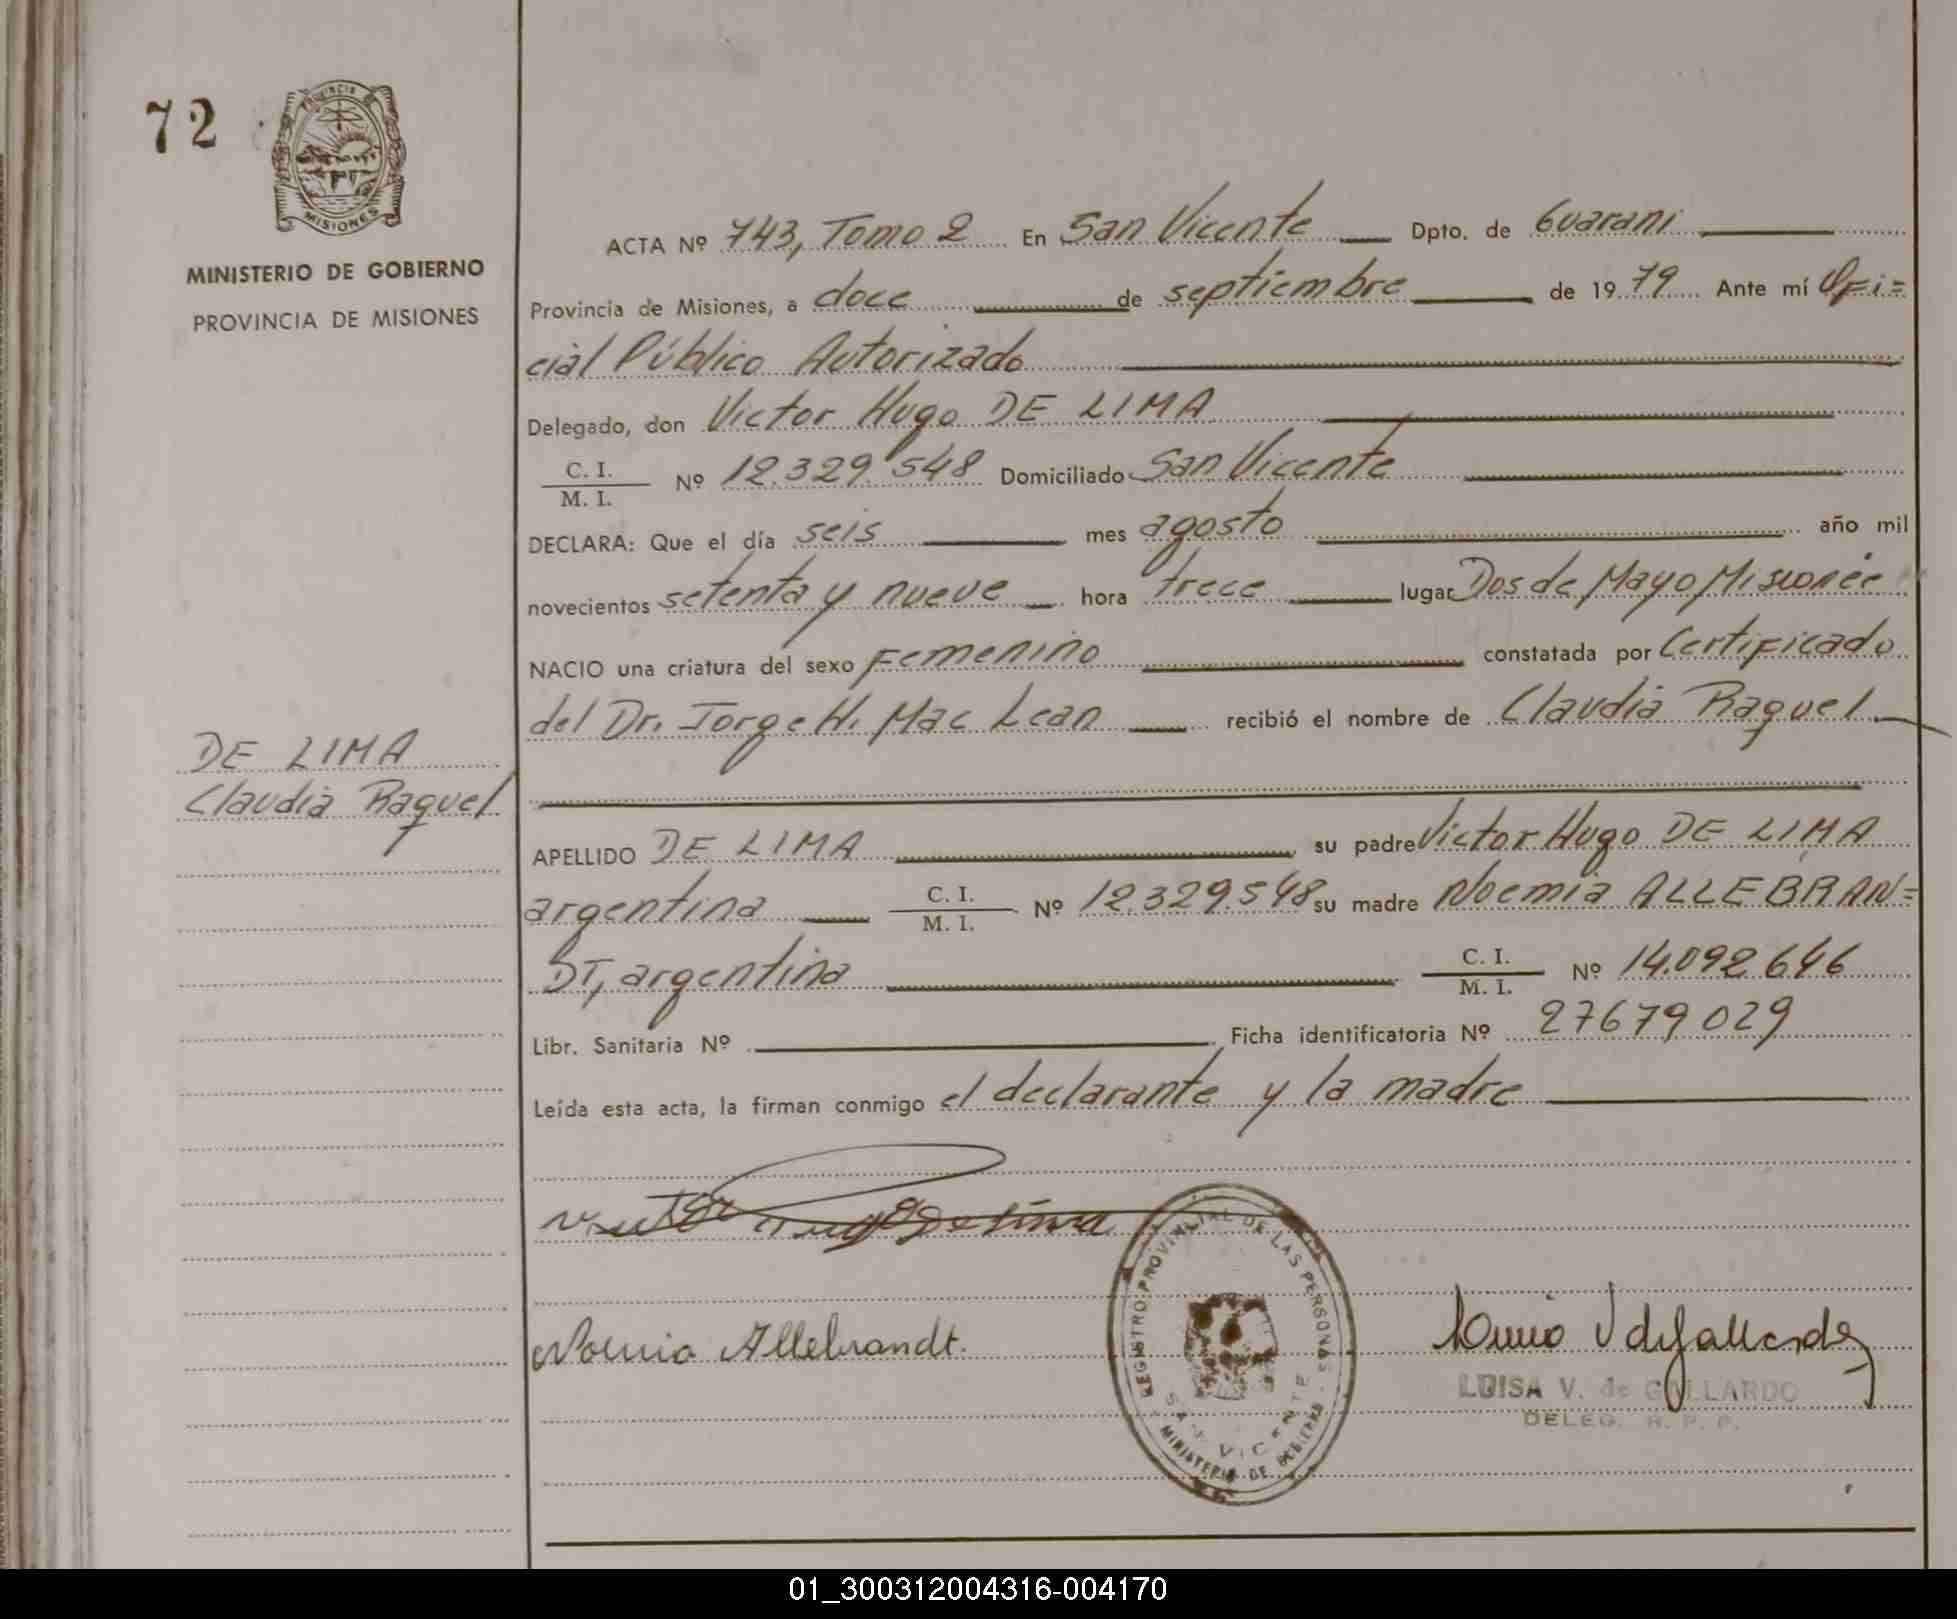 72
PROVINCIA DE
MISIONES
MINISTERIO DE GOBIERNO
PROVINCIA DE MISIONES
ACTA Nº 743, Tomo 2 En San Vicente Dpto. de Guarani
Provincia de Misiones, a doce de septiembre de 1979 Ante mí Ofi=
cial Público Autorizado
Delegado, don Victor Hugo DE LIMA
C. I.
M. I. Nº 12.329.548 Domiciliado San Vicente
DECLARA: Que el día seis mes agosto año mil
novecientos setenta y nueve hora trece lugar Dos de Mayo Misiones
NACIO una criatura del sexo Femenino constatada por Certificado
del Dr. Jorge H. Mac Lean recibió el nombre de Claudia Raquel
DE LIMA
Claudia Raquel
APELLIDO DE LIMA su padre Victor Hugo DE LIMA
argentina C. I.
M. I. Nº 12.329.548 su madre Noemia ALLEBRAN=
DT, argentina C. I.
M. I. Nº 14.092.646
Libr. Sanitaria Nº Ficha identificatoria Nº 27679029
Leída esta acta, la firman conmigo el declarante y la madre
REGISTRO PROVINCIAL DE LAS PERSONAS
SAN VICENTE
MINISTERIO DE GOBIERNO
Noemia Allebrandt.
LUISA V. de GALLARDO
DELEG. R. P. P.
01_300312004316-004170